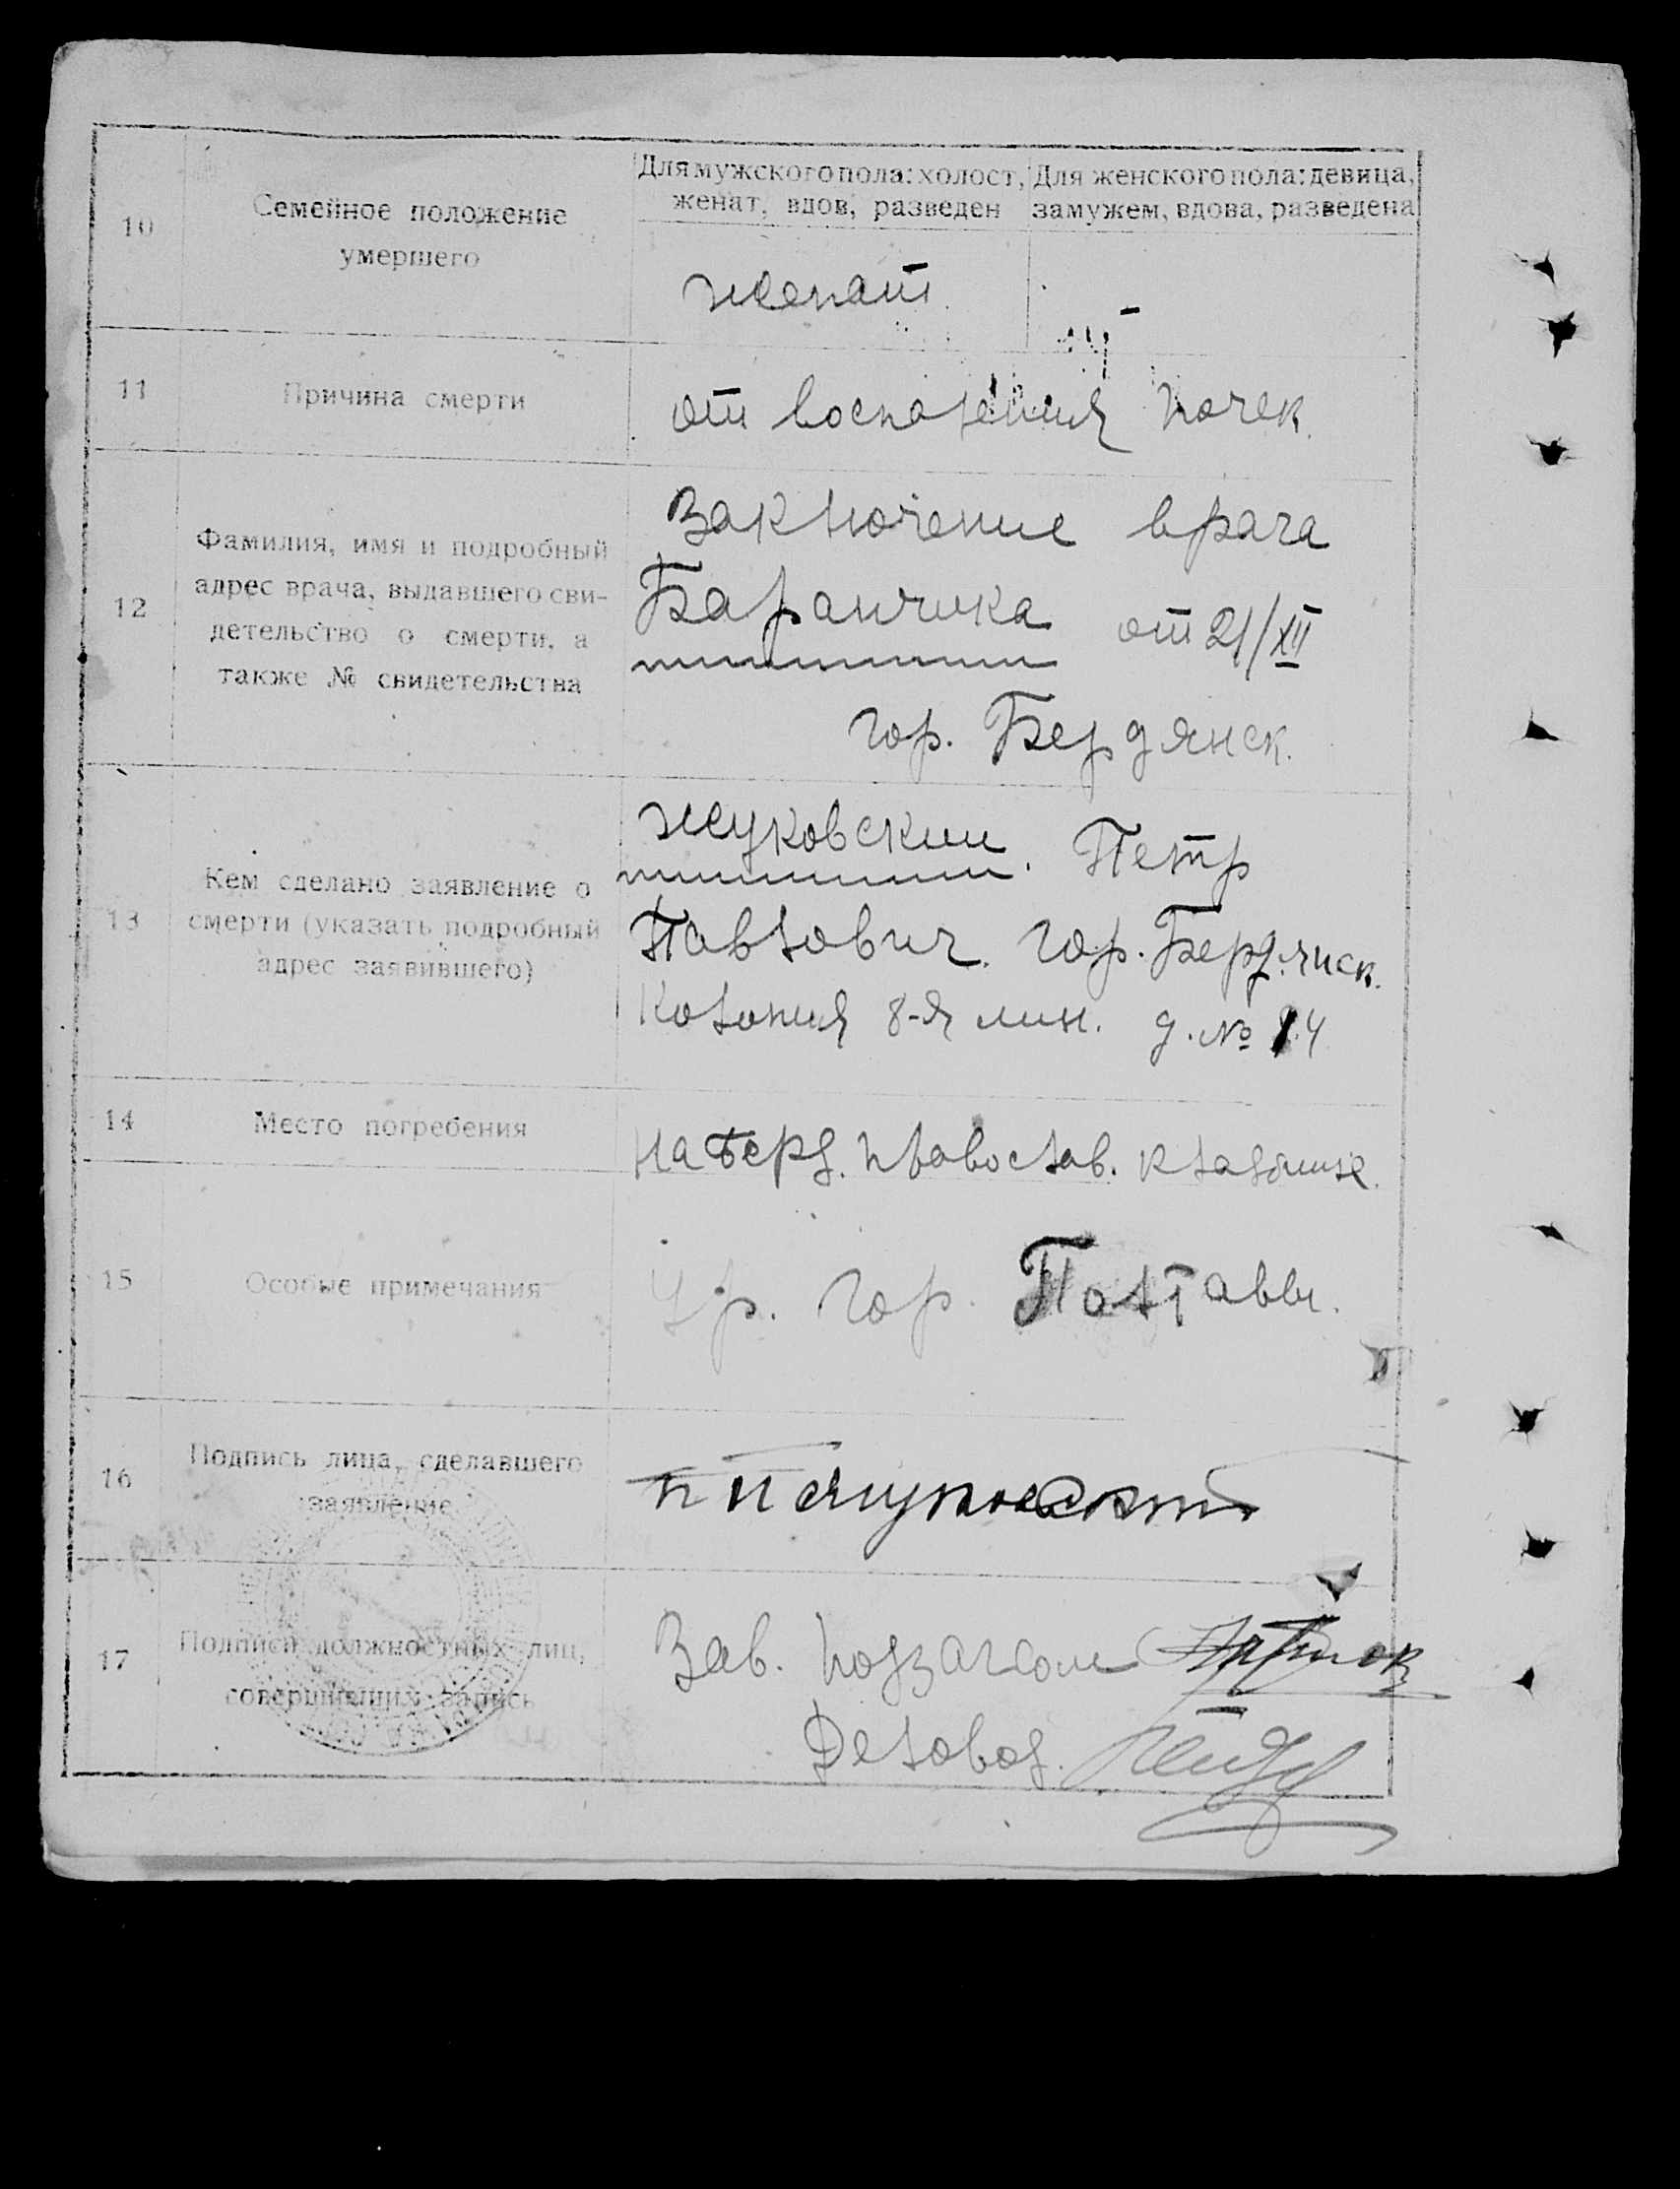 Для мужского пола: холост, женат, вдов, разведен
Для женского пола: девица, замужем, вдова, разведена
10
Семейное положение
умершего
женат
11
Причина смерти
от воспаления почек.
12
Фамилия, имя и подробный
адрес врача, выдавшего сви-
детельство о смерти, а
также № свидетельства
Заключение врача
Баранчика от 21/XII
гор. Бердянск.
13
Кем сделано заявление о
смерти (указать подробный
адрес заявившего)
Жуковский. Петр
Павлович. гор. Бердянск.
Колония 8-я лин. д. №
14
Место погребения
На Берд. православ. кладбище.
15
Особые примечания
Ур. гор. Полтавы.
16
Подпись лица, сделавшего
заявление
17
Подписи должностных лиц,
совершивших запись
Зав. подзагсом
Деловод.